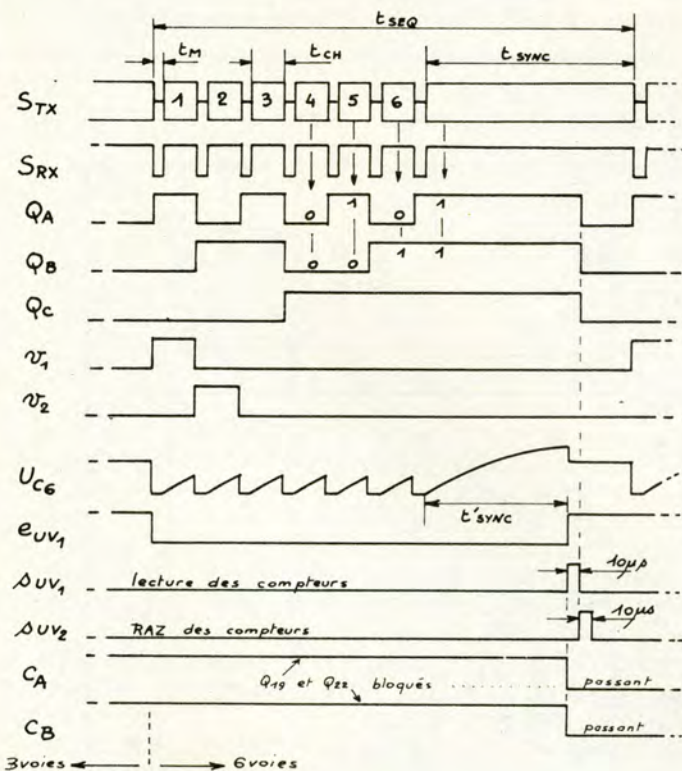 tSEQ
tM tCH tSYNC
STX 1 2 3 4 5 6
SRX
QA 0 1 0 1
QB 0 0 1 1
QC
v1
v2
UC6
t'SYNC
eUV1
10µs
sUV1 lecture des compteurs
10µs
sUV2 RAZ des compteurs
CA Q19 et Q22 bloqués passant
CB passant
3voies 6voies